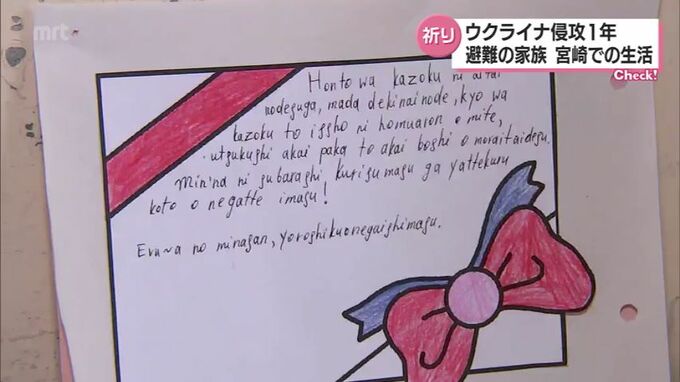 mrt
祈り
ウクライナ侵攻1年
避難の家族 宮崎での生活
Check!
Honto wa kazoku ni aitai
nodesuga, mada dekinainode, kyo wa
kazoku to issho ni homuaron o mite,
utsukushi akai paka to akai boshi o moraitaidesu.
Min'na ni subarashi kurisumasu ga yattekuru
koto o negatte imasu!
no minasan, yoroshikuonegaishimasu.